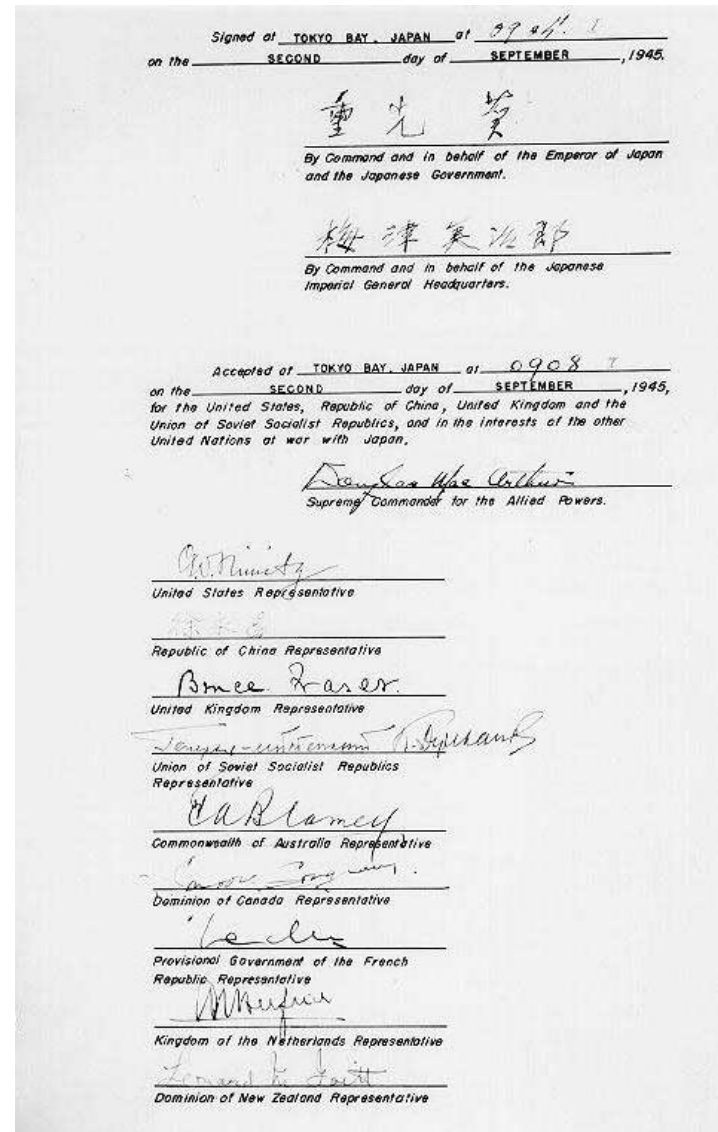 Signed at TOKYO BAY, JAPAN at 0904 I
on the SECOND day of SEPTEMBER, 1945.
重光葵
By Command and in behalf of the Emperor of Japan
and the Japanese Government.
梅津美治郎
By Command and in behalf of the Japanese
Imperial General Headquarters.
Accepted at TOKYO BAY, JAPAN at 0908 I
on the SECOND day of SEPTEMBER, 1945,
for the United States, Republic of China, United Kingdom and the
Union of Soviet Socialist Republics, and in the interests of the other
United Nations at war with Japan.
Douglas MacArthur
Supreme Commander for the Allied Powers.
C.W. Nimitz
United States Representative
徐永昌
Republic of China Representative
Bruce Fraser.
United Kingdom Representative
Union of Soviet Socialist Republics
Representative
T A Blamey
Commonwealth of Australia Representative
Dominion of Canada Representative
Leclerc
Provisional Government of the French
Republic Representative
Kingdom of the Netherlands Representative
Leonard M Isitt
Dominion of New Zealand Representative